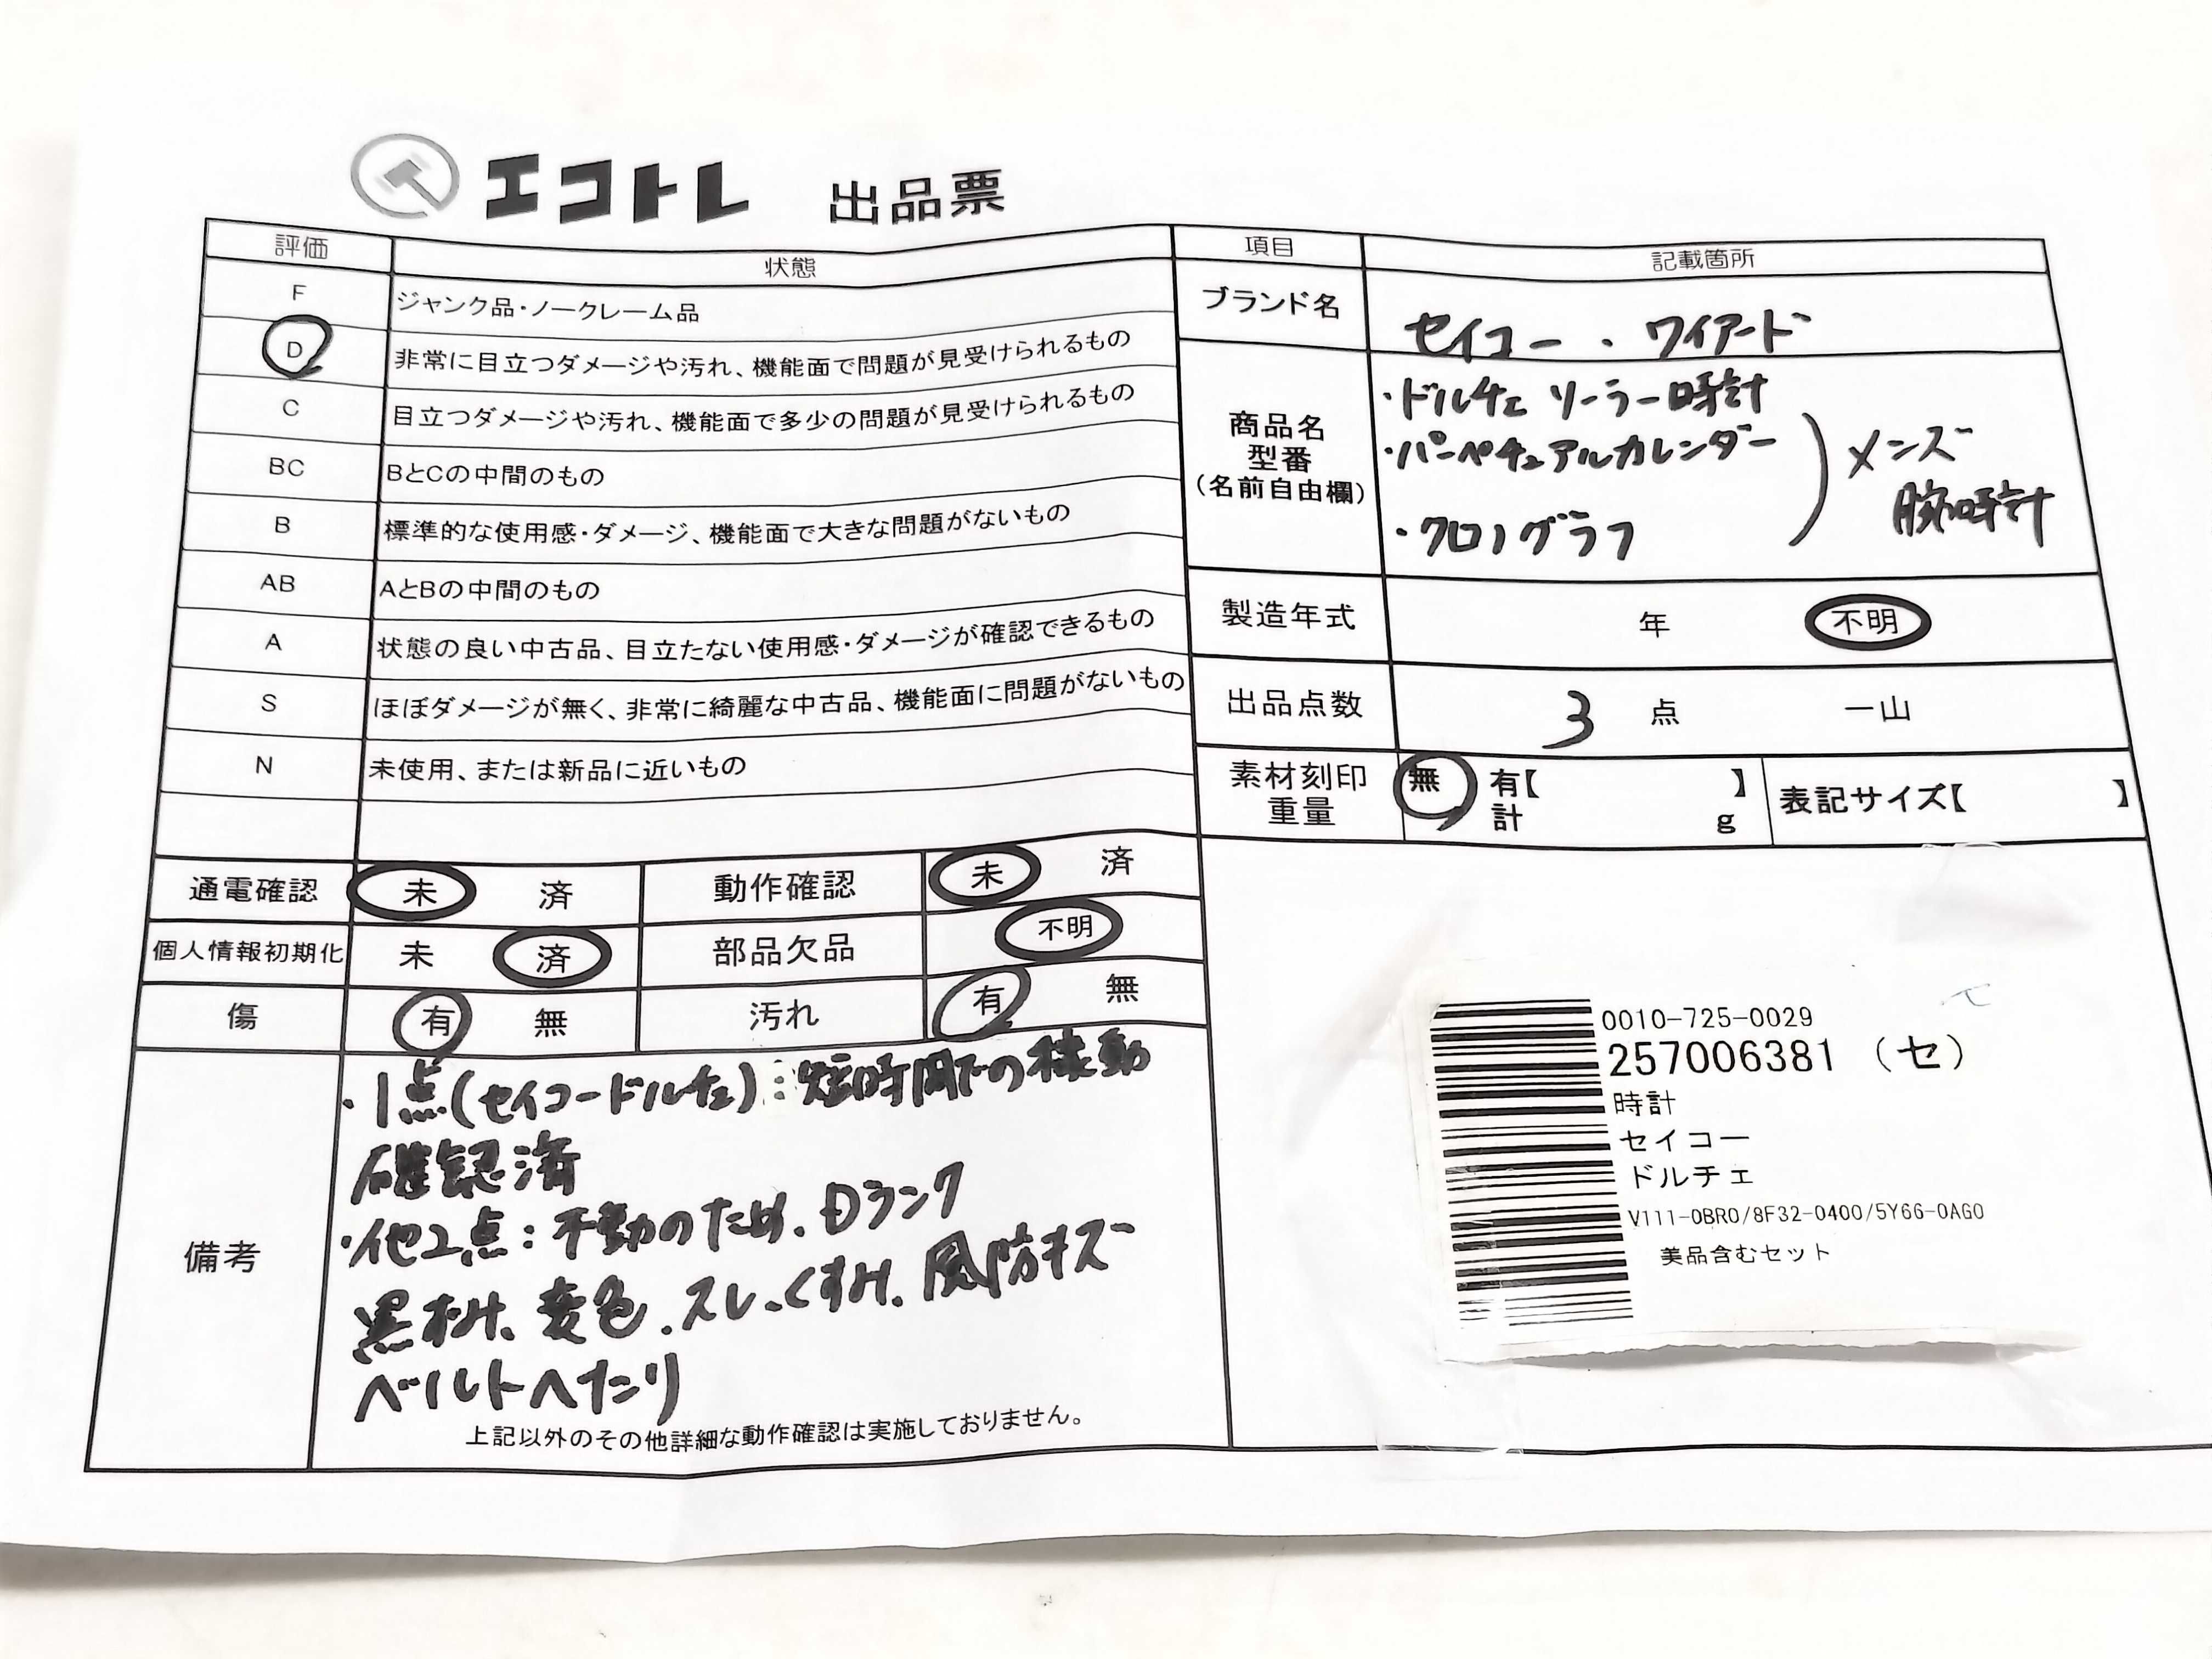 エコトレ 出品票
評価 状態
F ジャンク品・ノークレーム品
D 非常に目立つダメージや汚れ、機能面で問題が見受けられるもの
C 目立つダメージや汚れ、機能面で多少の問題が見受けられるもの
BC BとCの中間のもの
B 標準的な使用感・ダメージ、機能面で大きな問題がないもの
AB AとBの中間のもの
A 状態の良い中古品、目立たない使用感・ダメージが確認できるもの
S ほぼダメージが無く、非常に綺麗な中古品、機能面に問題がないもの
N 未使用、または新品に近いもの
通電確認 未 済 動作確認 未 済
個人情報初期化 未 済 部品欠品 不明
傷 有 無 汚れ 有 無
備考
・1点(セイコードルチェ):短時間での稼動
確認済
・他2点:不動のため、Dランク
黒ずみ、変色、スレ、くすみ、風防キズ
ベルトヘたり
上記以外のその他詳細な動作確認は実施しておりません。
項目 記載箇所
ブランド名 セイコー・ワイアード
商品名
型番
(名前自由欄)
・ドルチェ ソーラー時計
・パーペチュアルカレンダー
・クロノグラフ
メンズ
腕時計
製造年式 年 不明
出品点数 3 点 一山
素材刻印 無 有【 】 表記サイズ【 】
重量 計 g
0010-725-0029
257006381 (セ)
時計
セイコー
ドルチェ
V111-0BR0/8F32-0400/5Y66-0AG0
美品含むセット